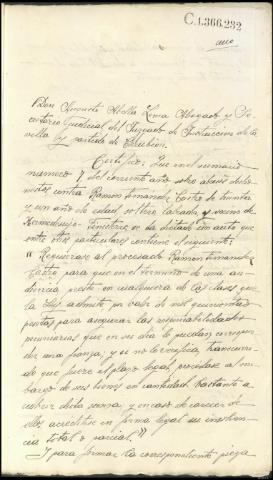 C.1.366.232
uno
Don Augusto Abella Lema Abogado y Se-
cretario Judicial del Juzgado de Instruccion de la
villa y partido de Corcubion.
Certifico: Que en el sumario
numero 7 del corriente año sobre abusos desho-
nestos contra Ramon Fernandez Castro de treinta
y un año de edad, soltero labrador y vecino de
se ha dictado con auto que
entre otros particulares contiene el siguiente:
"Requierase al procesado Ramon Fernandez
Castro para que en el termino de una au-
diencia preste en cualquiera de las clases que
la Ley admite, por valor de mil quinientas
pesetas para asegurar las responsabilidades
pecuniarias que en su dia le puedan correspon-
der una fianza, y si no lo verifica, transcurri-
do que fuere el plazo legal, procedase al em-
bargo de sus bienes en cantidad bastante a
cubrir dicha suma, y en caso de carecer de
ellos acreditese en forma legal su insolven-
cia total o parcial."
Y para formar la correspondiente pieza